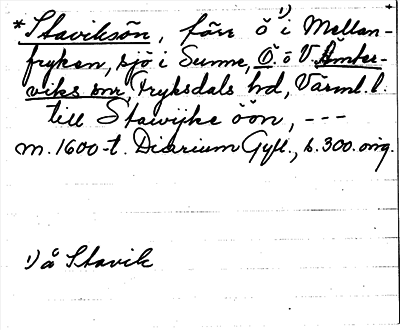 *Staviksön, förr ö ¹) i Mellan-
fryken, sjö i Sunne, Ö. o V. Ämter-
viks snr, Fryksdals hd, Värml. l.
till Stawijke öön, ---
m. 1600-t. Diarium Gyll., s. 300. orig.
¹) å Stavik